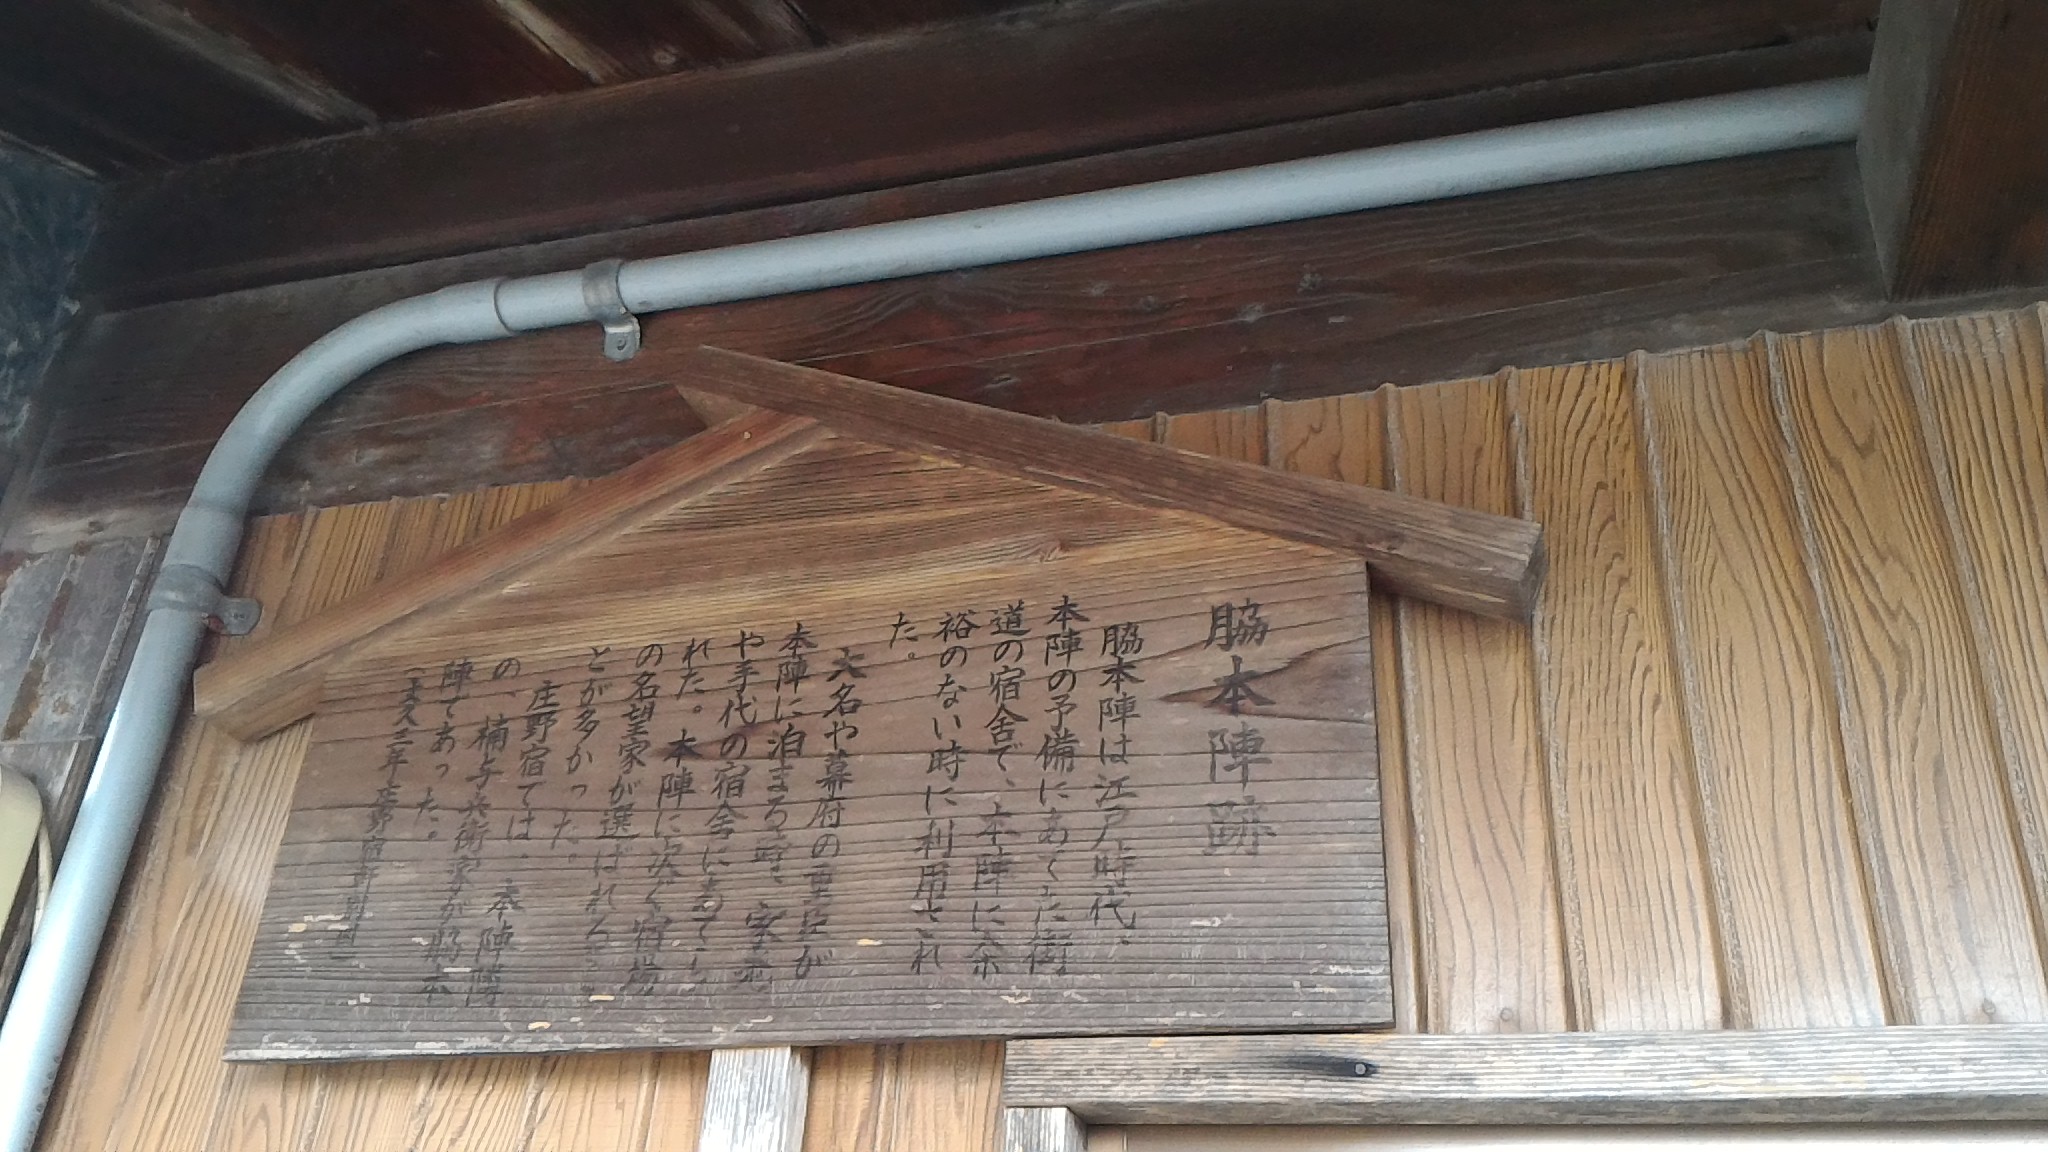 脇本陣跡
脇本陣は江戸時代、
本陣の予備にあてた街
道の宿舎で、本陣に余
裕のない時に利用され
た。
大名や幕府の重臣が
本陣に泊まる時、家老
や手代の宿舎にあてら
れた。本陣に次ぐ宿場
の名望家が選ばれるこ
とが多かった。
庄野宿では、本陣隣
の、楠与兵衛家が脇本
陣であった。
文久三年庄野宿